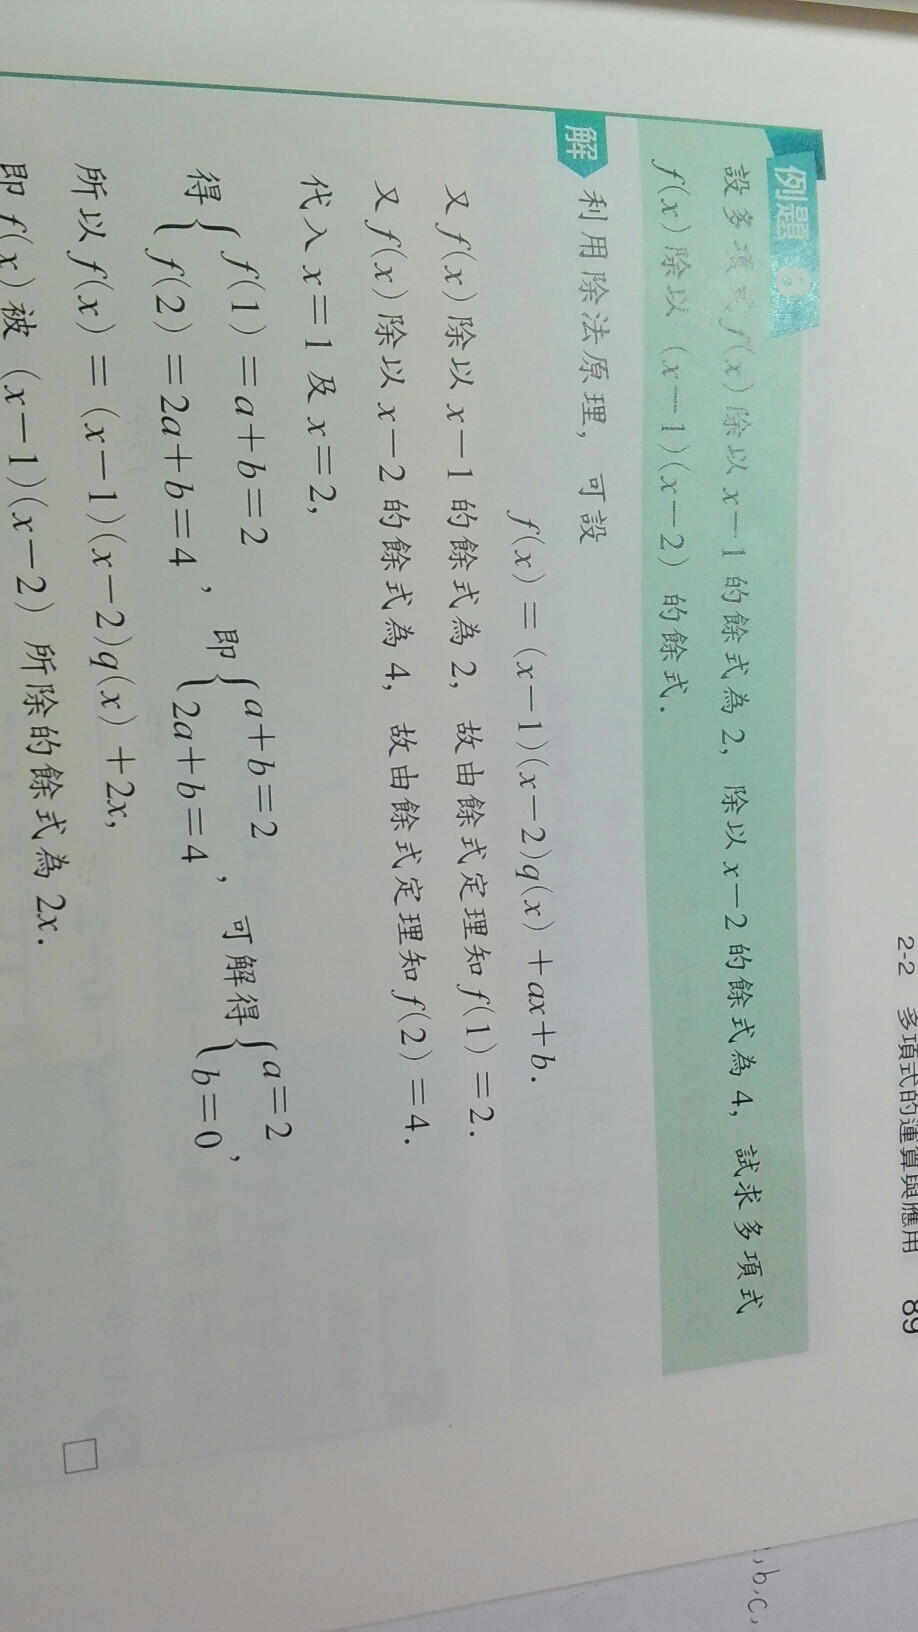 2-2 多項式的運算與應用 89
例題 8
設多項式 f(x) 除以 x－1 的餘式為 2，除以 x－2 的餘式為 4，試求多項式
f(x) 除以 (x－1)(x－2) 的餘式．
解 利用除法原理，可設
f(x)＝(x－1)(x－2)q(x)＋ax＋b．
又 f(x) 除以 x－1 的餘式為 2，故由餘式定理知 f(1)＝2．
又 f(x) 除以 x－2 的餘式為 4，故由餘式定理知 f(2)＝4．
代入 x＝1 及 x＝2，
得 { f(1)＝a＋b＝2 f(2)＝2a＋b＝4 ，即 { a＋b＝2 2a＋b＝4 ，可解得 { a＝2 b＝0 ，
所以 f(x)＝(x－1)(x－2)q(x)＋2x，
即 f(x) 被 (x－1)(x－2) 所除的餘式為 2x．
,b,c,